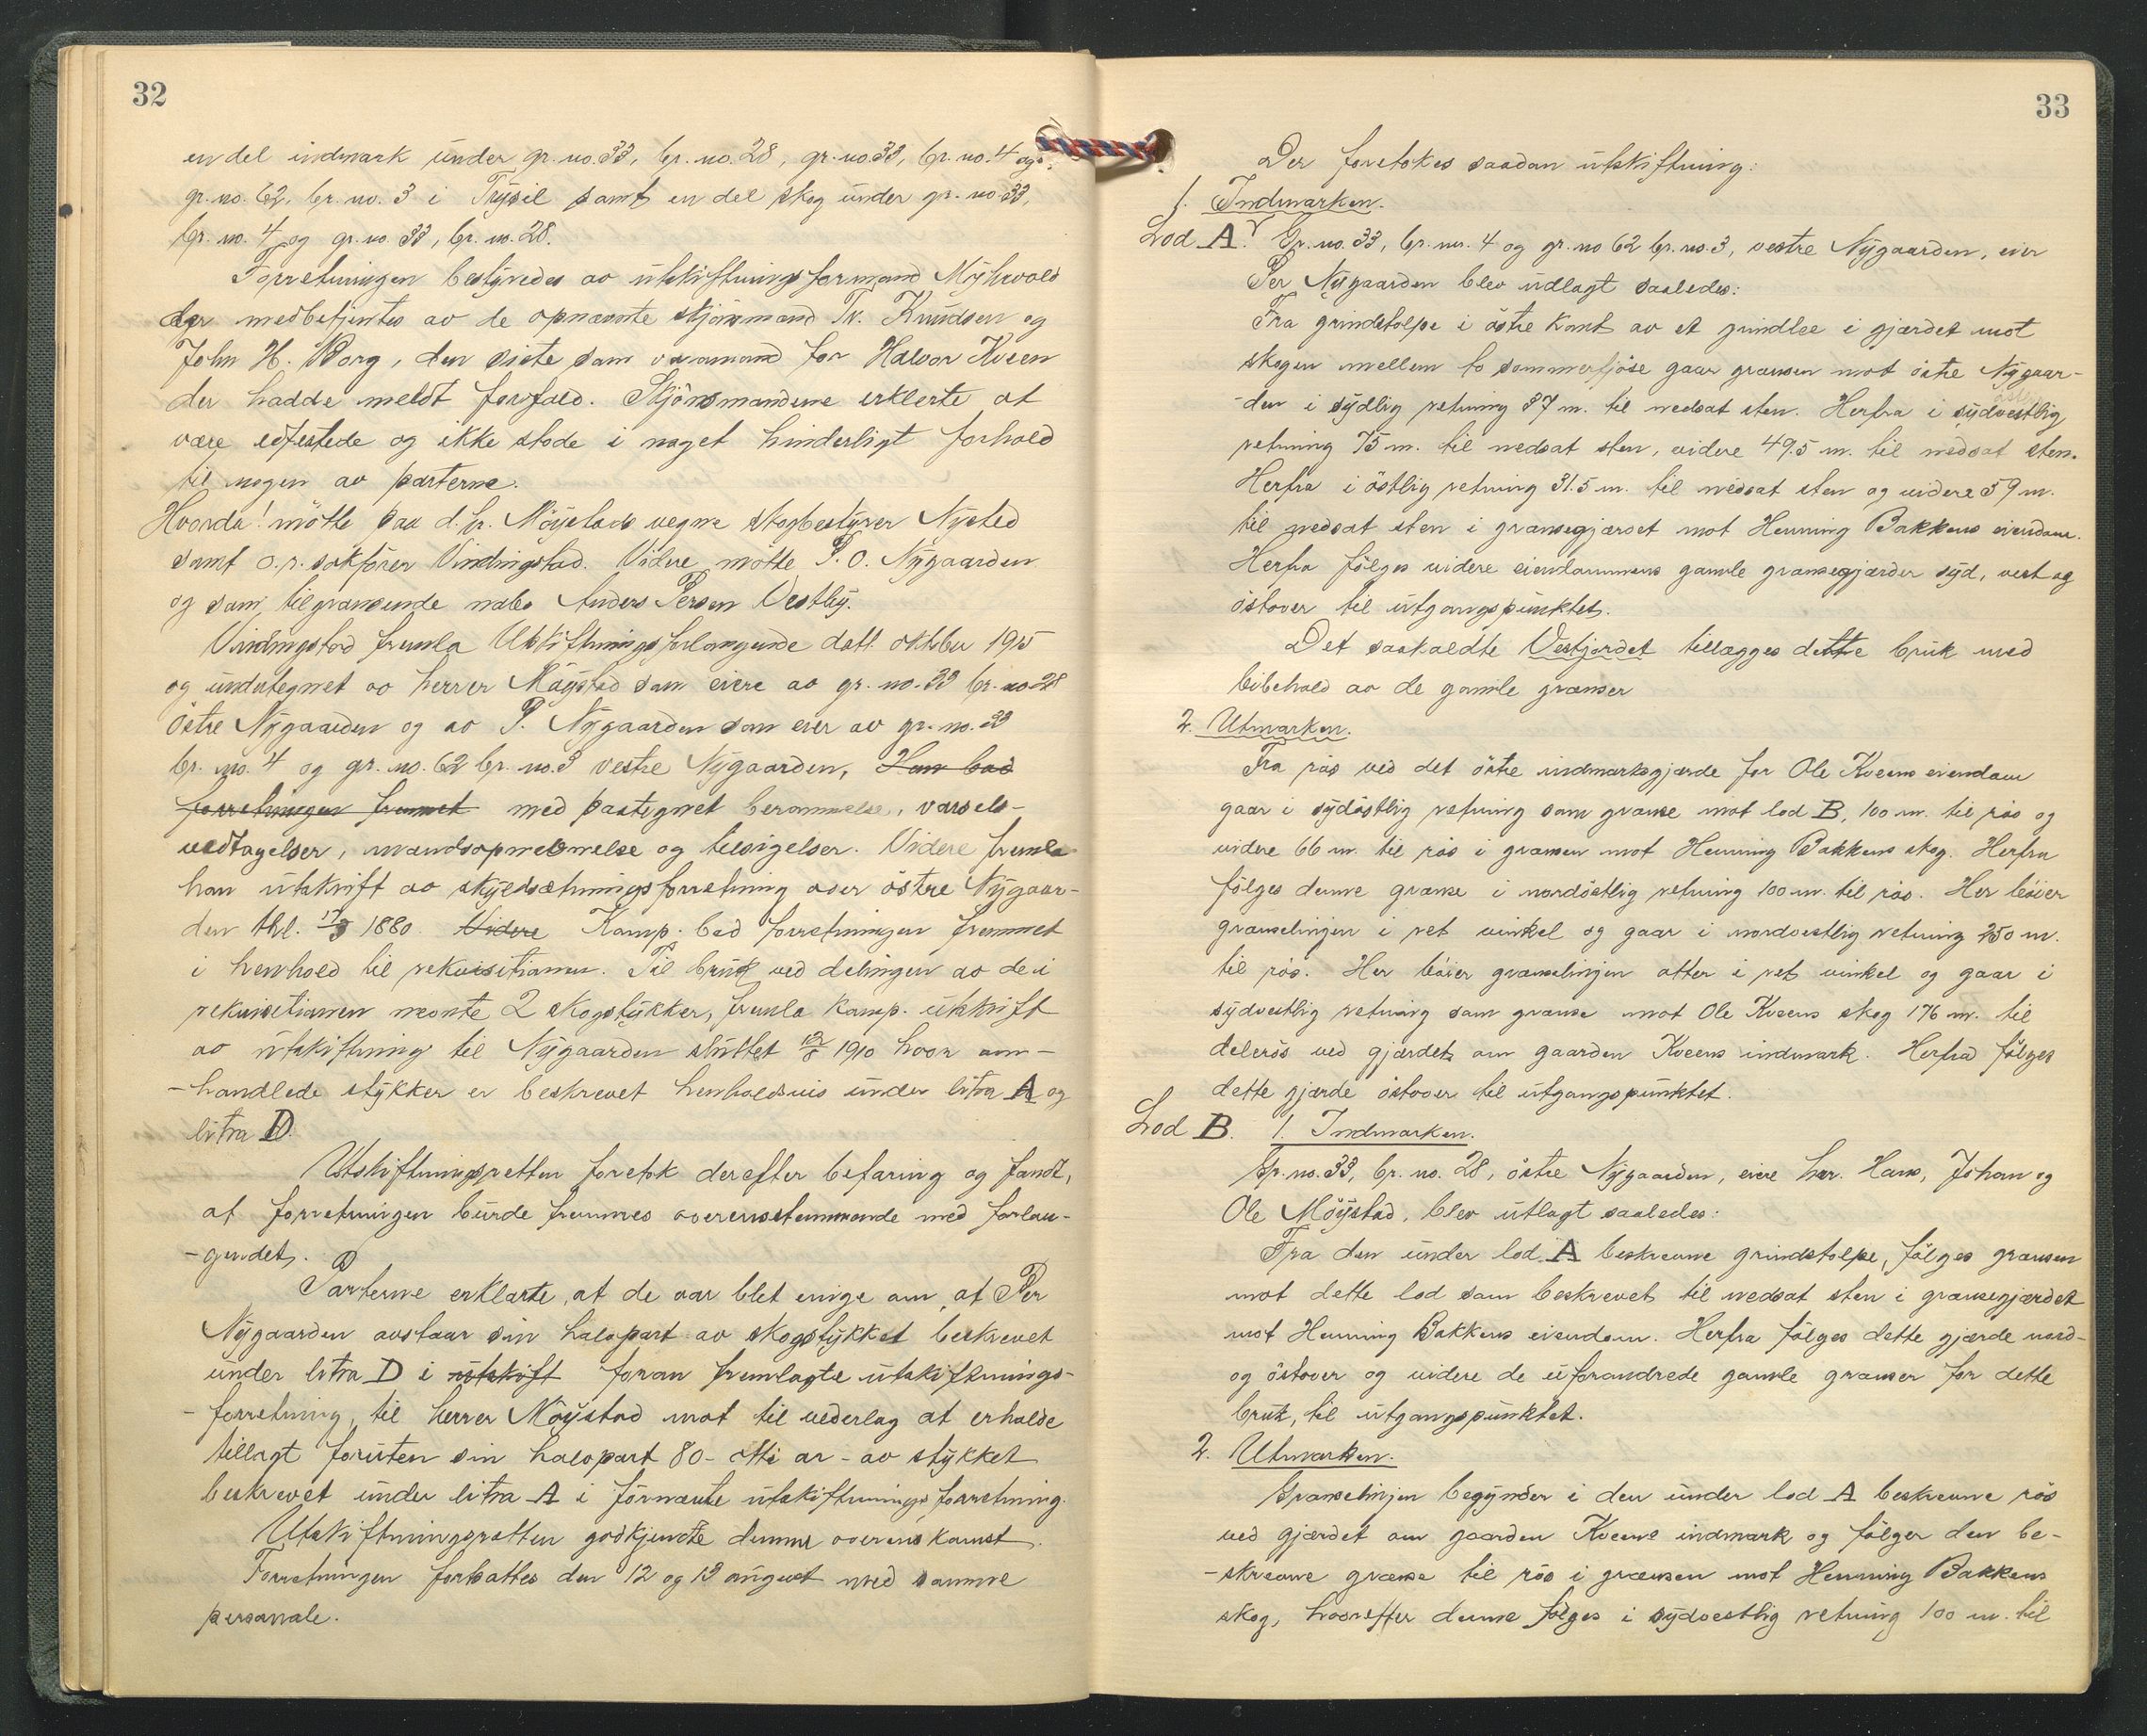 32
en del indmark under gr. no. 33, br. no. 28, gr. no. 33, br. no. 4 og
gr. no. 62, br. no. 3 i Trysil samt en del skog under gr. no. 33,
br. no. 4 og gr. no. 33, br. no. 28.
Forretningen bestyredes av utskiftningsformand Myhrvold
der medbetjentes av de opnævnte skjönsmænd Tr. Knudsen og
John H. Borg, den siste som varamand for Halvor Kveen
der hadde meldt forfald. Skjönsmændene erklerte at
være edfestede og ikke stode i noget hinderligt forhold
til nogen av parterne.
Hvorda! mötte paa d. hr. Möystads vegne skogbestyrer Nysted
samt o.r. sakförer Vindingstad. Videre mötte P. O. Nygaarden
og som tilgrænsende nabo Anders Persen Vestby.
Vindingstad fremla Utskiftningsforlangende datt. oktober 1915
og undertegnet av herrer Möystad som eiere av gr. no. 33 br. no 28
östre Nygaarden og av P. Nygaarden som eier av gr. no. 33
br. no. 4 og gr. no. 62 br. no. 3 vestre Nygaarden, Han bad
forretningen fremmet med paategnet berammelse, varsels-
vedtagelser, mandsopnevnelse og tilsigelser. Videre fremla
han utskrift av skyldsætningsforretning over östre Nygaar-
den thl. 17/3 1880. Videre Komp. bad forretningen fremmet
i henhold til rekvisitionen. Til bruk ved delingen av de i
rekvisitionen nævnte 2 skogstykker, fremla komp. utskrift
av utskiftning til Nygaarden sluttet 12/8 1910 hvor om-
-handlede stykker er beskrevet henholdsvis under litra A og
litra D.
Utskiftningsretten foretok derefter befaring og fandt,
at forretningen burde fremmes overensstemmende med forlan-
-gendet.
Parterne erklærte, at de var blet enige om, at Per
Nygaarden avstaar sin halvpart av skogstykket beskrevet
under litra D i utskift foran fremlagte utskiftnings-
- forretning, til herrer Möystad mot til vederlag at erholde
tillagt foruten sin halvpart 80 - otti ar - av stykket
beskrevet under litra A i förnævnte utskiftningsforretning.
Utskiftningsretten godkjendte denne overenskomst.
Forretningen fortsattes den 12 og 13 august med samme
personale.
33
Der foretokes saadan utskiftning:
1. Indmarken.
Lod A. Gr. no. 33, br. no. 4 og gr. no 62 br. no. 3, vestre Nygaarden, eier
Per Nygaarden blev udlagt saaledes:
Fra grindstolpe i östre kant av et grindlee i gjærdet mot
skogen mellem to sommerfjöse gaar grænsen mot östre Nygaar-
-den i sydlig retning 87 m. til nedsat sten. Herfra i sydvestlig
retning 75 m. til nedsat sten, videre 49.5 m. til nedsat sten.
Herfra i östlig retning 31.5 m. til nedsat sten og videre 59 m.
til nedsat sten i grænsegjærdet mot Henning Bakkens eiendom.
Herfra fölges videre eiendommens gamle grænsegjærder syd, vest og
östover til utgangspunktet.
Det saakaldte Vestjordet tillægges dette bruk med
bibehold av de gamle grænser
2. Utmarken.
Fra rös ved det östre indmarksgjærde for Ole Kveens eiendom
gaar i sydöstlig retning som grænse mot lod B, 100 m. til rös og
videre 66 m. til rös i grænsen mot Henning Bakkens skog. Herfra
fölges denne grænse i nordöstlig retning 100 m. til rös. Her böier
grænselinjen i ret vinkel og gaar i nordvestlig retning 250 m.
til rös. Her böier grænselinjen atter i ret vinkel og gaar i
sydvestlig retning som grænse mot Ole Kveens skog 176 m. til
delerös ved gjærdet om gaarden Kveens indmark. Herfra fölges
dette gjærde östover til utgangspunktet.
Lod B. 1. Indmarken.
Gr. no. 33, br. no. 28, östre Nygaarden, eiere hrr. Hans, Johan og
Ole Möystad, blev utlagt saaledes:
Fra den under lod A beskrevne grindstolpe, fölges grænsen
mot dette lod som beskrevet til nedsat sten i grænsegjærdet
mot Henning Bakkens eiendom. Herfra fölges dette gjærde nord-
og östover og videre de uforandrede gamle grænser for dette
bruk, til utgangspunktet.
2. Utmarken.
Grænselinjen begynder i den under lod A beskrevne rös
ved gjærdet om gaarden Kveens indmark og fölger den be-
-skrevne grænse til rös i grænsen mot Henning Bakkens
skog, hvorefter denne fölges i sydvestlig retning 100 m. til